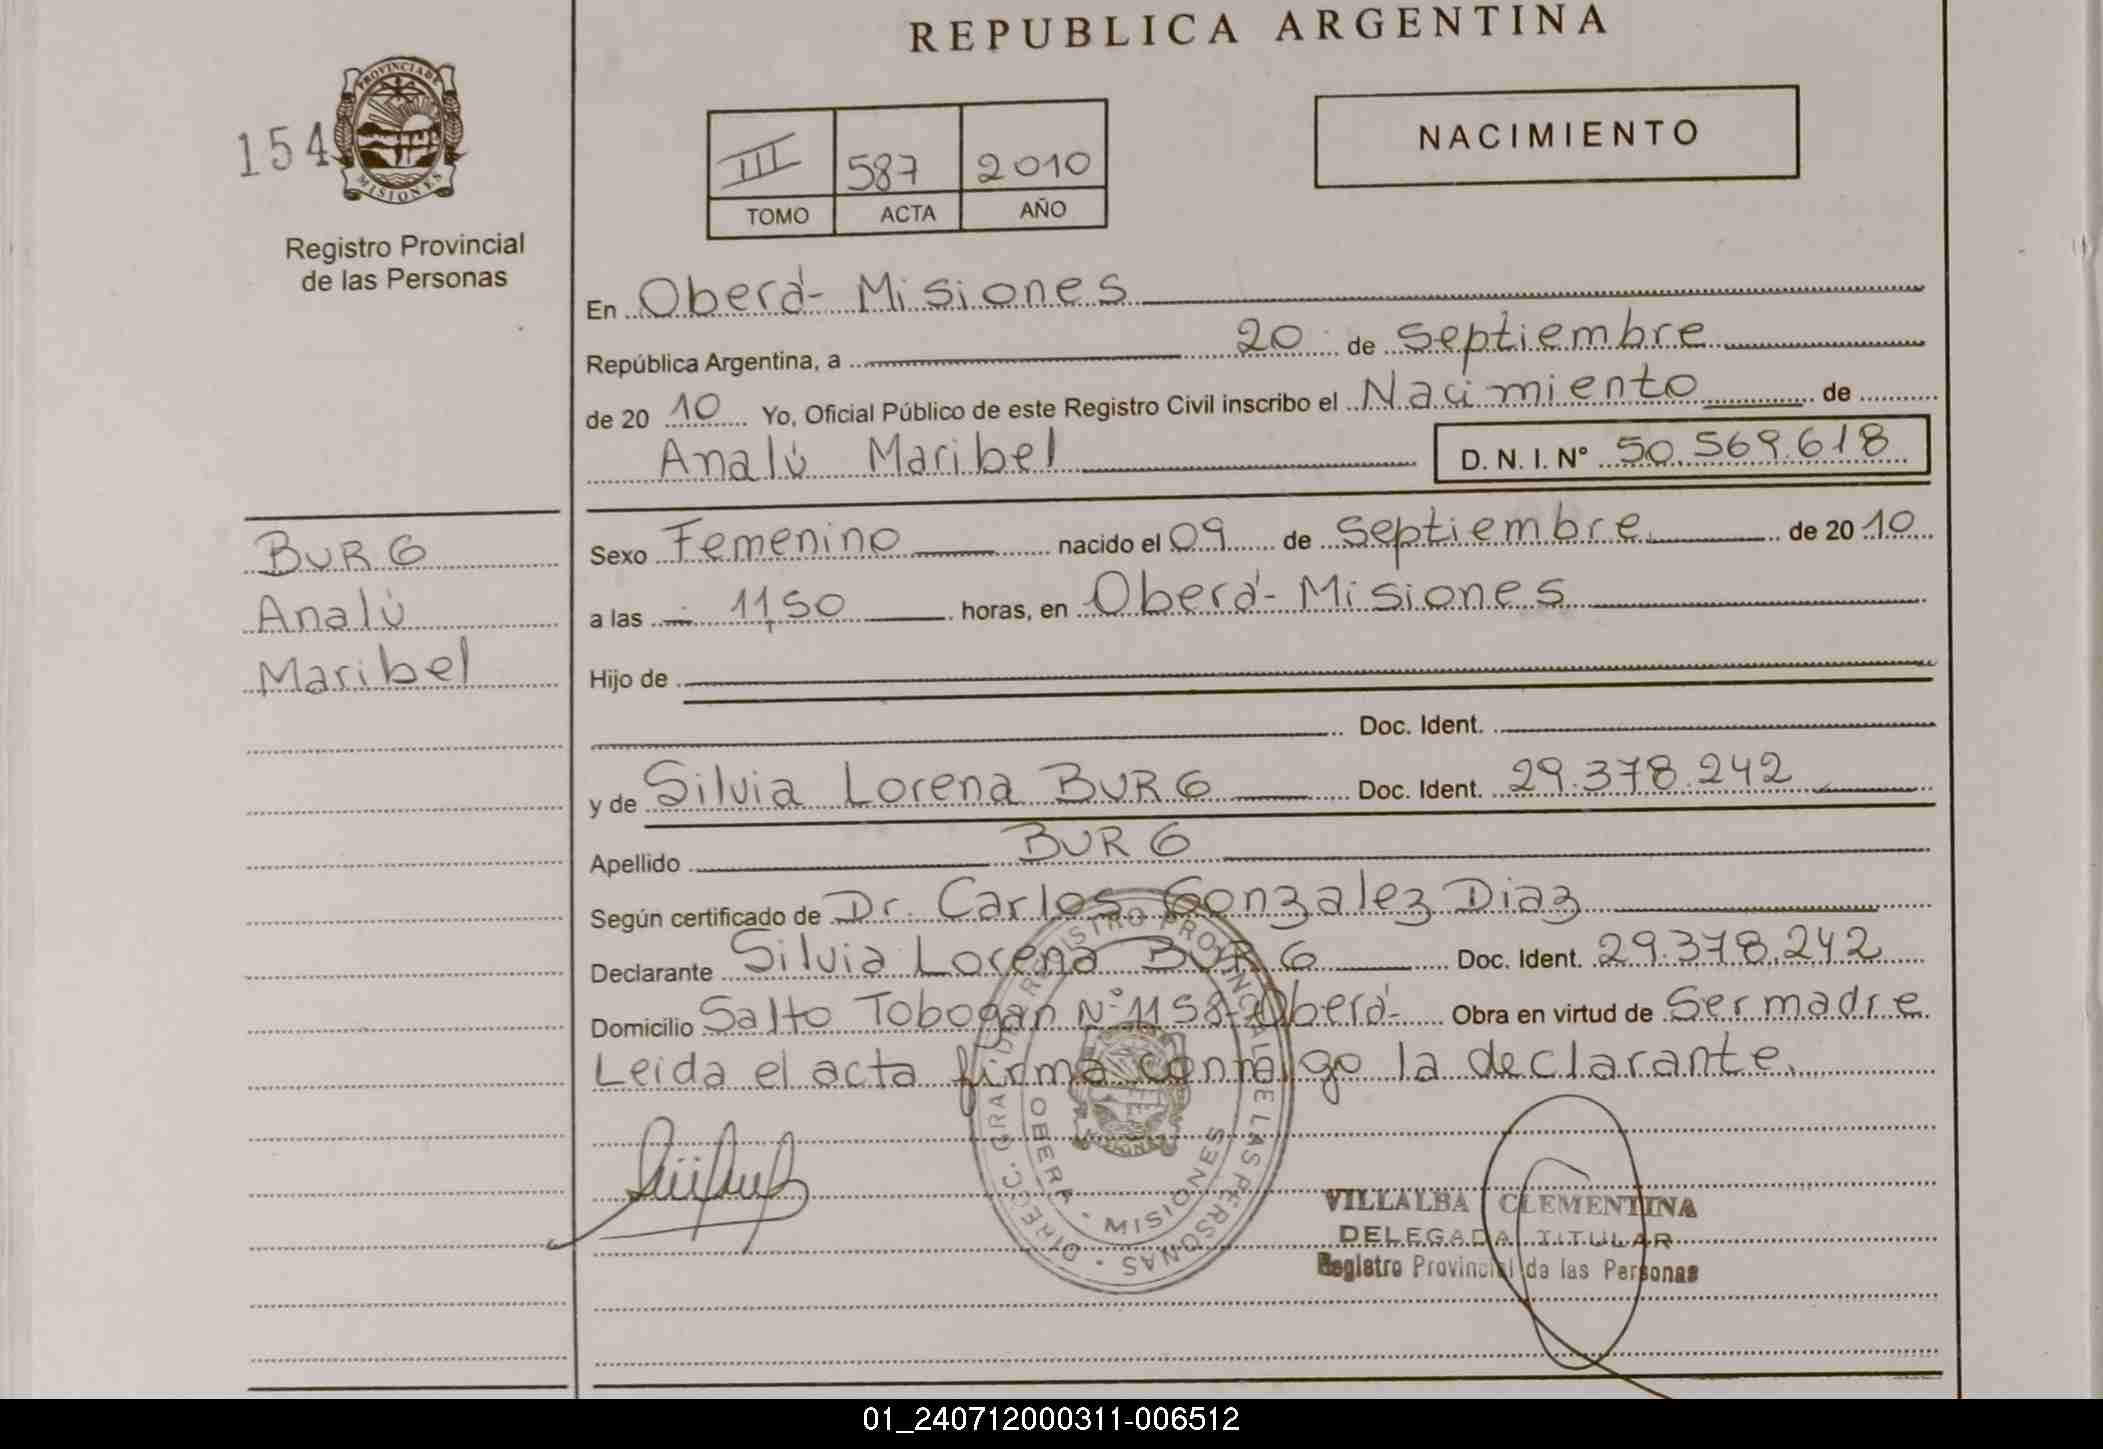 REPUBLICA ARGENTINA
154
PROVINCIA DE
MISIONES
Registro Provincial
de las Personas
III 587 2010
TOMO ACTA AÑO
NACIMIENTO
En Oberá- Misiones
República Argentina, a 20 de Septiembre
de 20 10 Yo, Oficial Público de este Registro Civil inscribo el Nacimiento de
Analú Maribel D. N. I. N° 50.569.618
BURG
Analú
Maribel
Sexo Femenino nacido el 09 de Septiembre de 20 10
a las 11,50 horas, en Oberá- Misiones
Hijo de
Doc. Ident.
y de Silvia Lorena BURG Doc. Ident. 29.378.242
Apellido BURG
Según certificado de Dr. Carlos Gonzalez Diaz
Declarante Silvia Lorena BURG Doc. Ident. 29.378.242
Domicilio Salto Tobogan N° 1158-Oberá- Obra en virtud de Ser madre
Leida el acta firma conmigo la declarante.
DIREC. GRAL. DE REGISTRO PROVINCIAL DE LAS PERSONAS
OBERA · MISIONES
VILLALBA CLEMENTINA
DELEGADA TITULAR
Registro Provincial de las Personas
01_240712000311-006512